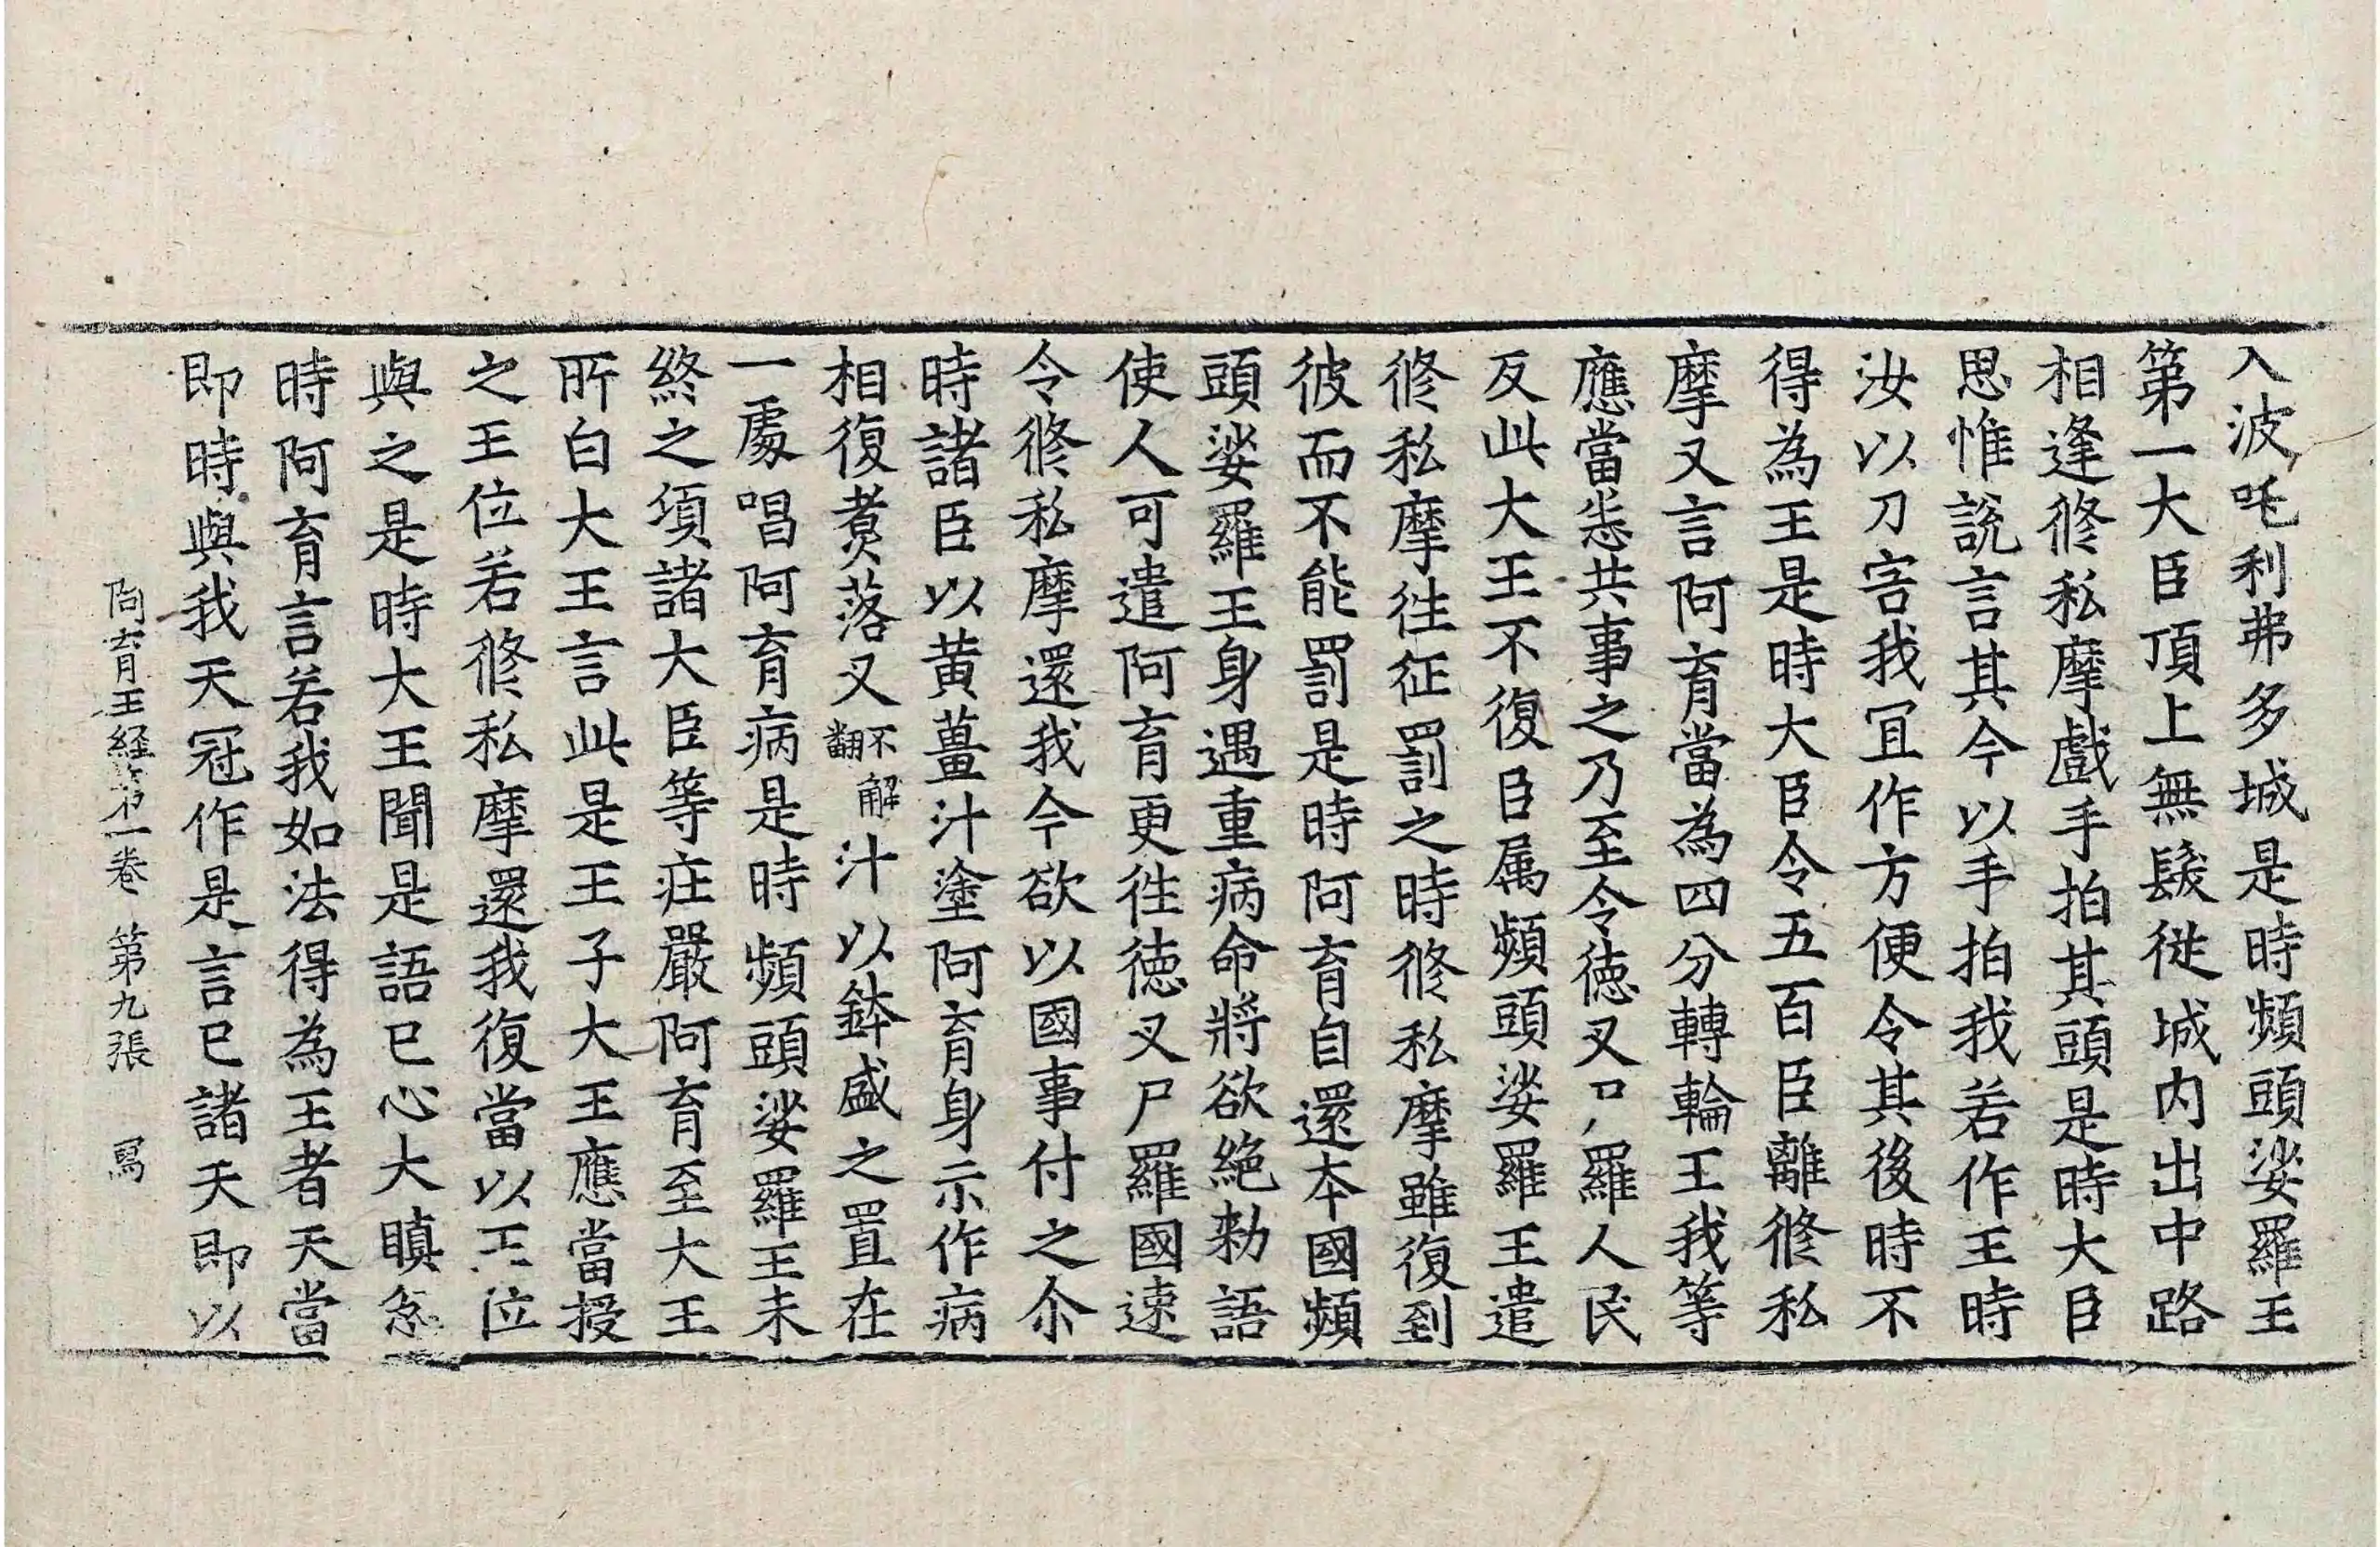 入波吒利弗多城是時頻頭娑羅王
第一大臣頂上無髮從城内出中路
相逢修私摩戲手拍其頭是時大臣
思惟説言其今以手拍我若作王時
汝以刀害我冝作方便令其後時不
得為王是時大臣令五百臣離修私
摩又言阿育當為四分轉輪王我等
應當悉共事之乃至令德叉尸羅人民
反此大王不復臣属頻頭娑羅王遣
修私摩往征罰之時修私摩雖復到
彼而不能罰是時阿育自還本國頻
頭娑羅王身遇重病命將欲絶勑語
使人可遣阿育更往徳叉尸羅國速
令修私摩還我今欲以國事付之尒
時諸臣以黄薑汁塗阿育身示作病
相復煑落叉不解翻汁以鉢盛之置在
一處唱阿育病是時頻頭娑羅王未
終之項諸大臣等庄嚴阿育至大王
所白大王言此是王子大王應當授
之王位若修私摩還我復當以王位
與之是時大王聞是語已心大瞋忿
時阿育言若我如法得為王者天當
即時與我天冠作是言已諸天即以
阿育王経第一巻 第九張 寫